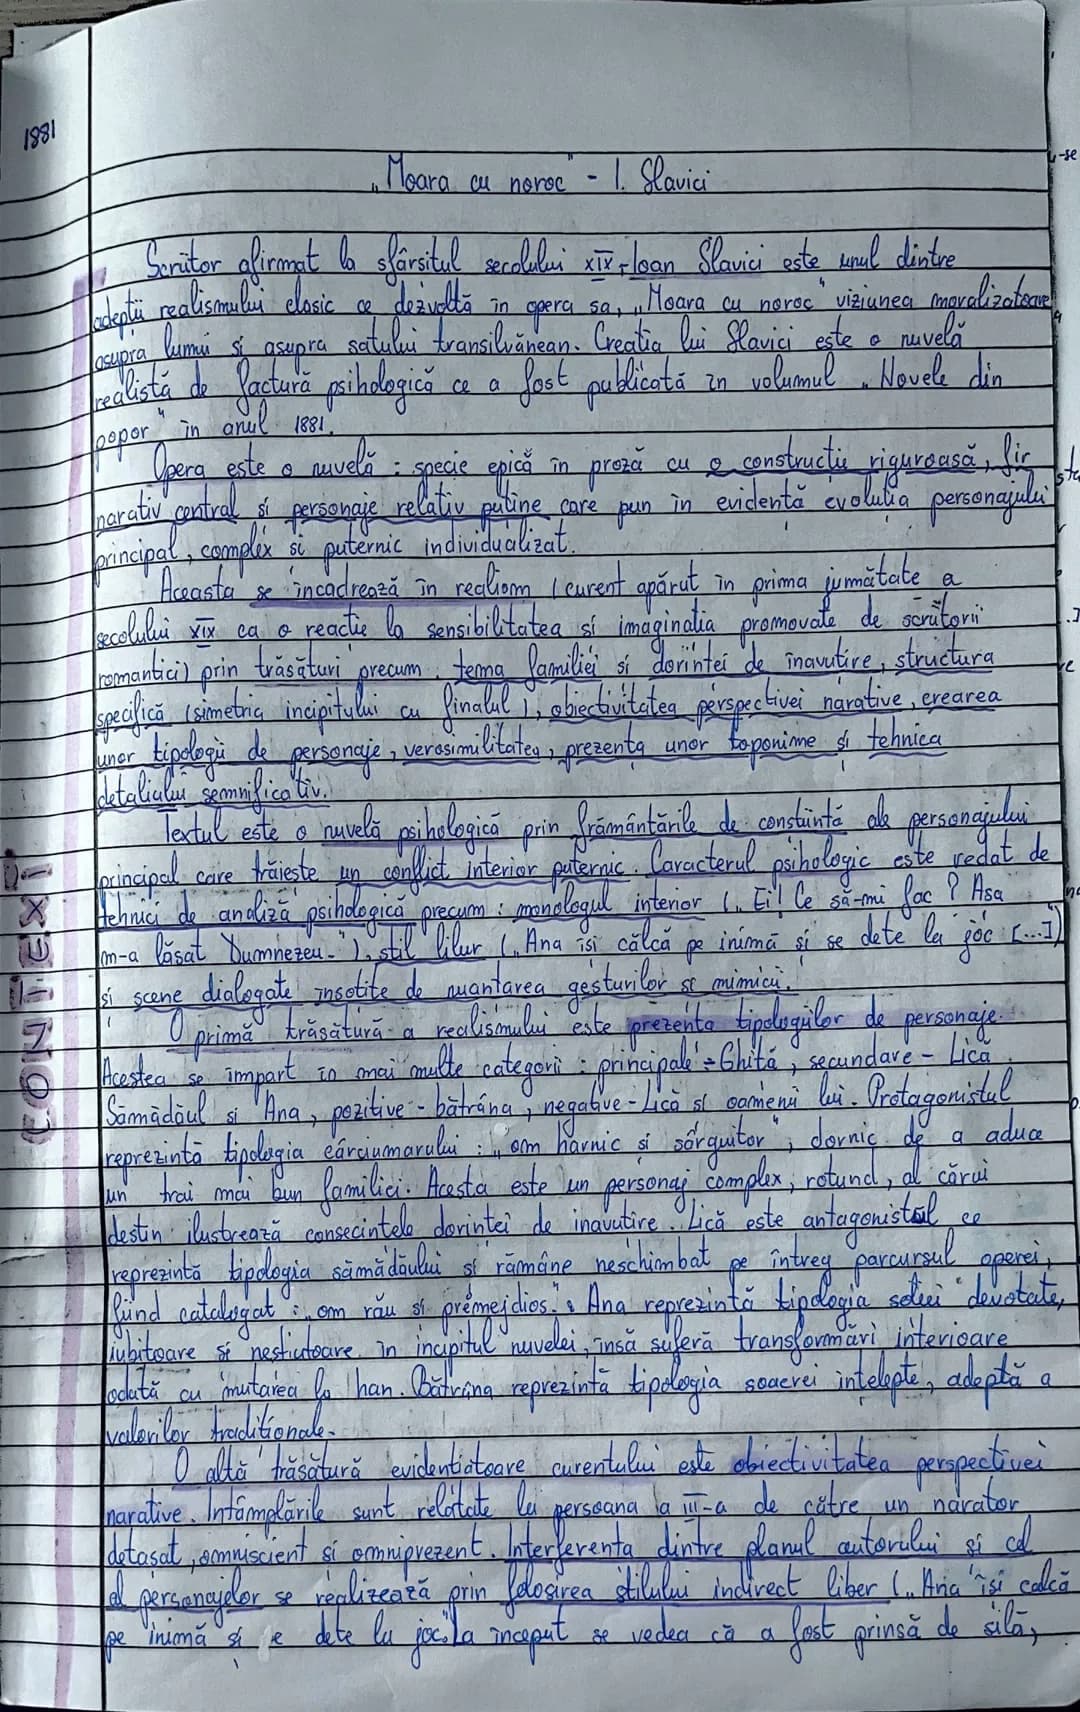 1881
„Moara cu noroc" - I. Slavici
-se
Scriitor afirmat la sfârsitul secolului XIX, Ioan Slavici este unul dintre
adeptii realismului clasic ce dezvoltă în opera sa, „Moara cu noroc" viziunea moralizatoare
asupra lumii si asupra satului transilvănean. Creatia lui Slavici este o nuvelă
realistă de factură psihologică ce a fost publicată în volumul „Novele din
popor" în anul 1881.
Opera este o nuvelă : specie epică în proză cu o constructie riguroasă, fir
narativ central si personaje relativ putine care pun în evidentă evolutia personajului
principal, complex si puternic individualizat.
Aceasta se încadrează în realism (curent apărut în prima jumătate a
secolului XIX ca o reactie la sensibilitatea si imaginatia promovate de scriitorii
romantici) prin trăsături precum: tema familiei si dorintei de înavutire, structura
specifică (simetria incipitului cu finalul), obiectivitatea perspectivei narative, crearea
unor tipologii de personaje, verosimilitatea, prezenta unor toponime si tehnica
detaliului semnificativ.
Textul este o nuvelă psihologică prin frământările de constiintă ale personajului
principal care trăieste un conflict interior puternic. Caracterul psihologic este redat de
tehnici de analiză psihologică precum : monologul interior („Ei! Ce să-mi fac ? Asa
m-a lăsat Dumnezeu."), stil liber („Ana îsi călcă pe inimă si se dete la joc [...])
si scene dialogate însotite de nuantarea gesturilor si mimicii.
CONTEXT
O primă trăsătură a realismului este prezenta tipologiilor de personaje.
Acestea se împart în mai multe categorii : principale - Ghită, secundare - Lică
Sămădăul si Ana, pozitive - bătrâna, negative - Lică si oamenii lui. Protagonistul
reprezintă tipologia cârciumarului : „om harnic si sârguitor", dornic de a aduce
un trai mai bun familiei. Acesta este un personaj complex, rotund, al cărui
destin ilustrează consecintele dorintei de înavutire. Lică este antagonistul ce
reprezintă tipologia sămădăului si rămâne neschimbat pe întreg parcursul operei,
fiind catalogat : „om rău si premejdios." Ana reprezintă tipologia sotiei devotate,
iubitoare si nestiutoare în incipitul nuvelei, însă suferă transformări interioare
odată cu mutarea la han. Bătrâna reprezintă tipologia soacrei intelepte, adeptă a
valorilor traditionale.
O altă trăsătură evidentiatoare curentului este obiectivitatea perspectivei
narative. Întâmplările sunt relatate la persoana a III-a de către un narator
detasat, omniscient si omniprezent. Interferenta dintre planul autorului si cel
al personajelor se realizează prin folosirea stilului indirect liber („Ana îsi calcă
pe inimă si se dete la joc. La început se vedea că a fost prinsă de silă,